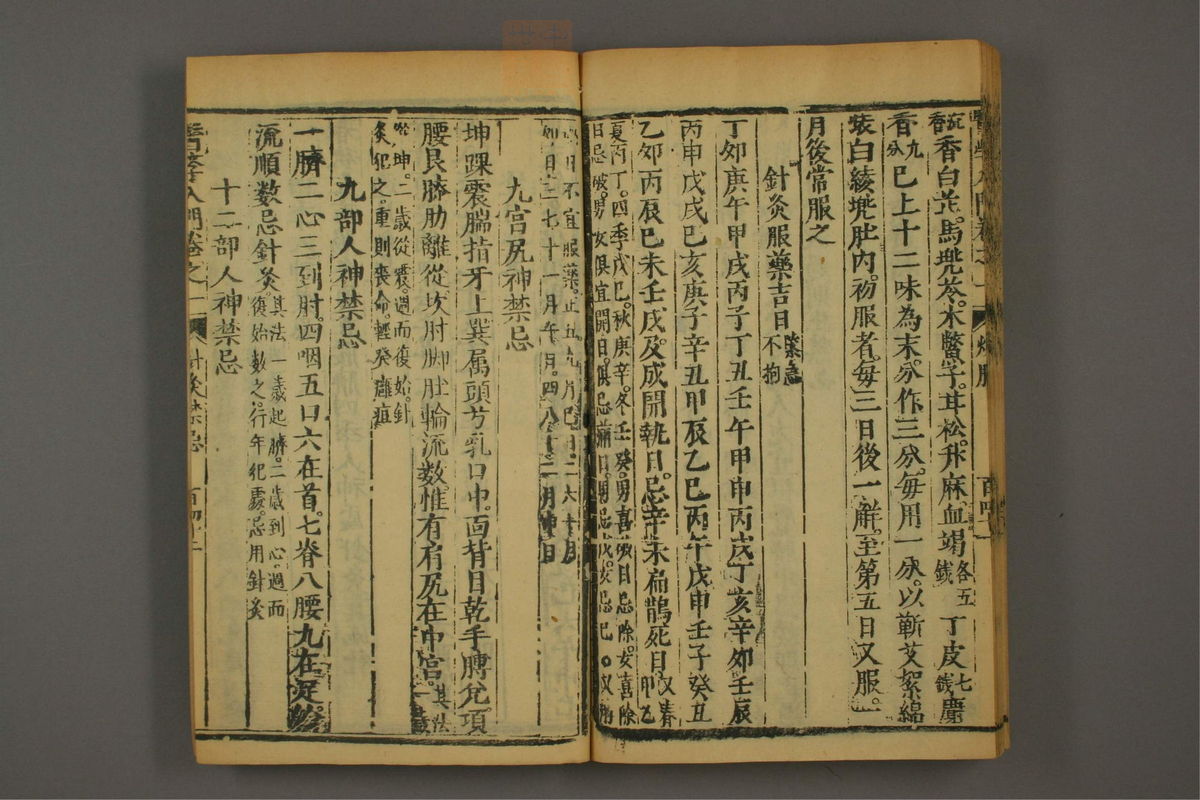 沉香白芷馬兜苓木鱉子甘松升麻血竭各五錢丁皮七錢麝
香九分已上十二味為末分作三分每用一分以蘄艾絮綿
裝白綾兜肚內初服者每三日後一解至第五日又服一
月後常服之
針灸服藥吉日藥急不拘
丁夘庚午甲戌丙子丁丑壬午甲申丙戌丁亥辛夘壬辰
丙申戊戌巳亥庚子辛丑甲辰乙巳丙午戊申壬子癸丑
乙夘丙辰巳未壬戌及成開執日忌辛未扁鵲死日又春甲乙
夏丙丁四季戊巳秋庚辛冬壬癸男喜破日忌除女喜除
日忌破男女俱宜開日俱忌滿日男忌戌女忌巳又
日不宜服藥正五九月巳日二六十月
日三七十一月午日四八十二月申日
九宮尻神禁忌
坤踝震腨指牙上巽属頭方乳口中面背目乾手膊兊項
腰艮膝肋離從坎肘脚肚輪流數惟有肩尻在中宮其法一歲
起坤二歲從震週而復始針
灸犯之重則喪命輕發癰疽
九部人神禁忌
一臍二心三到肘四咽五口六在首七脊八腰九在足
流順數忌針灸其法一歲起臍二歲到心週而
復始數之行年犯處忌用針灸
十二部人神禁忌
醫學入門卷之一 針灸禁忌 百四十二